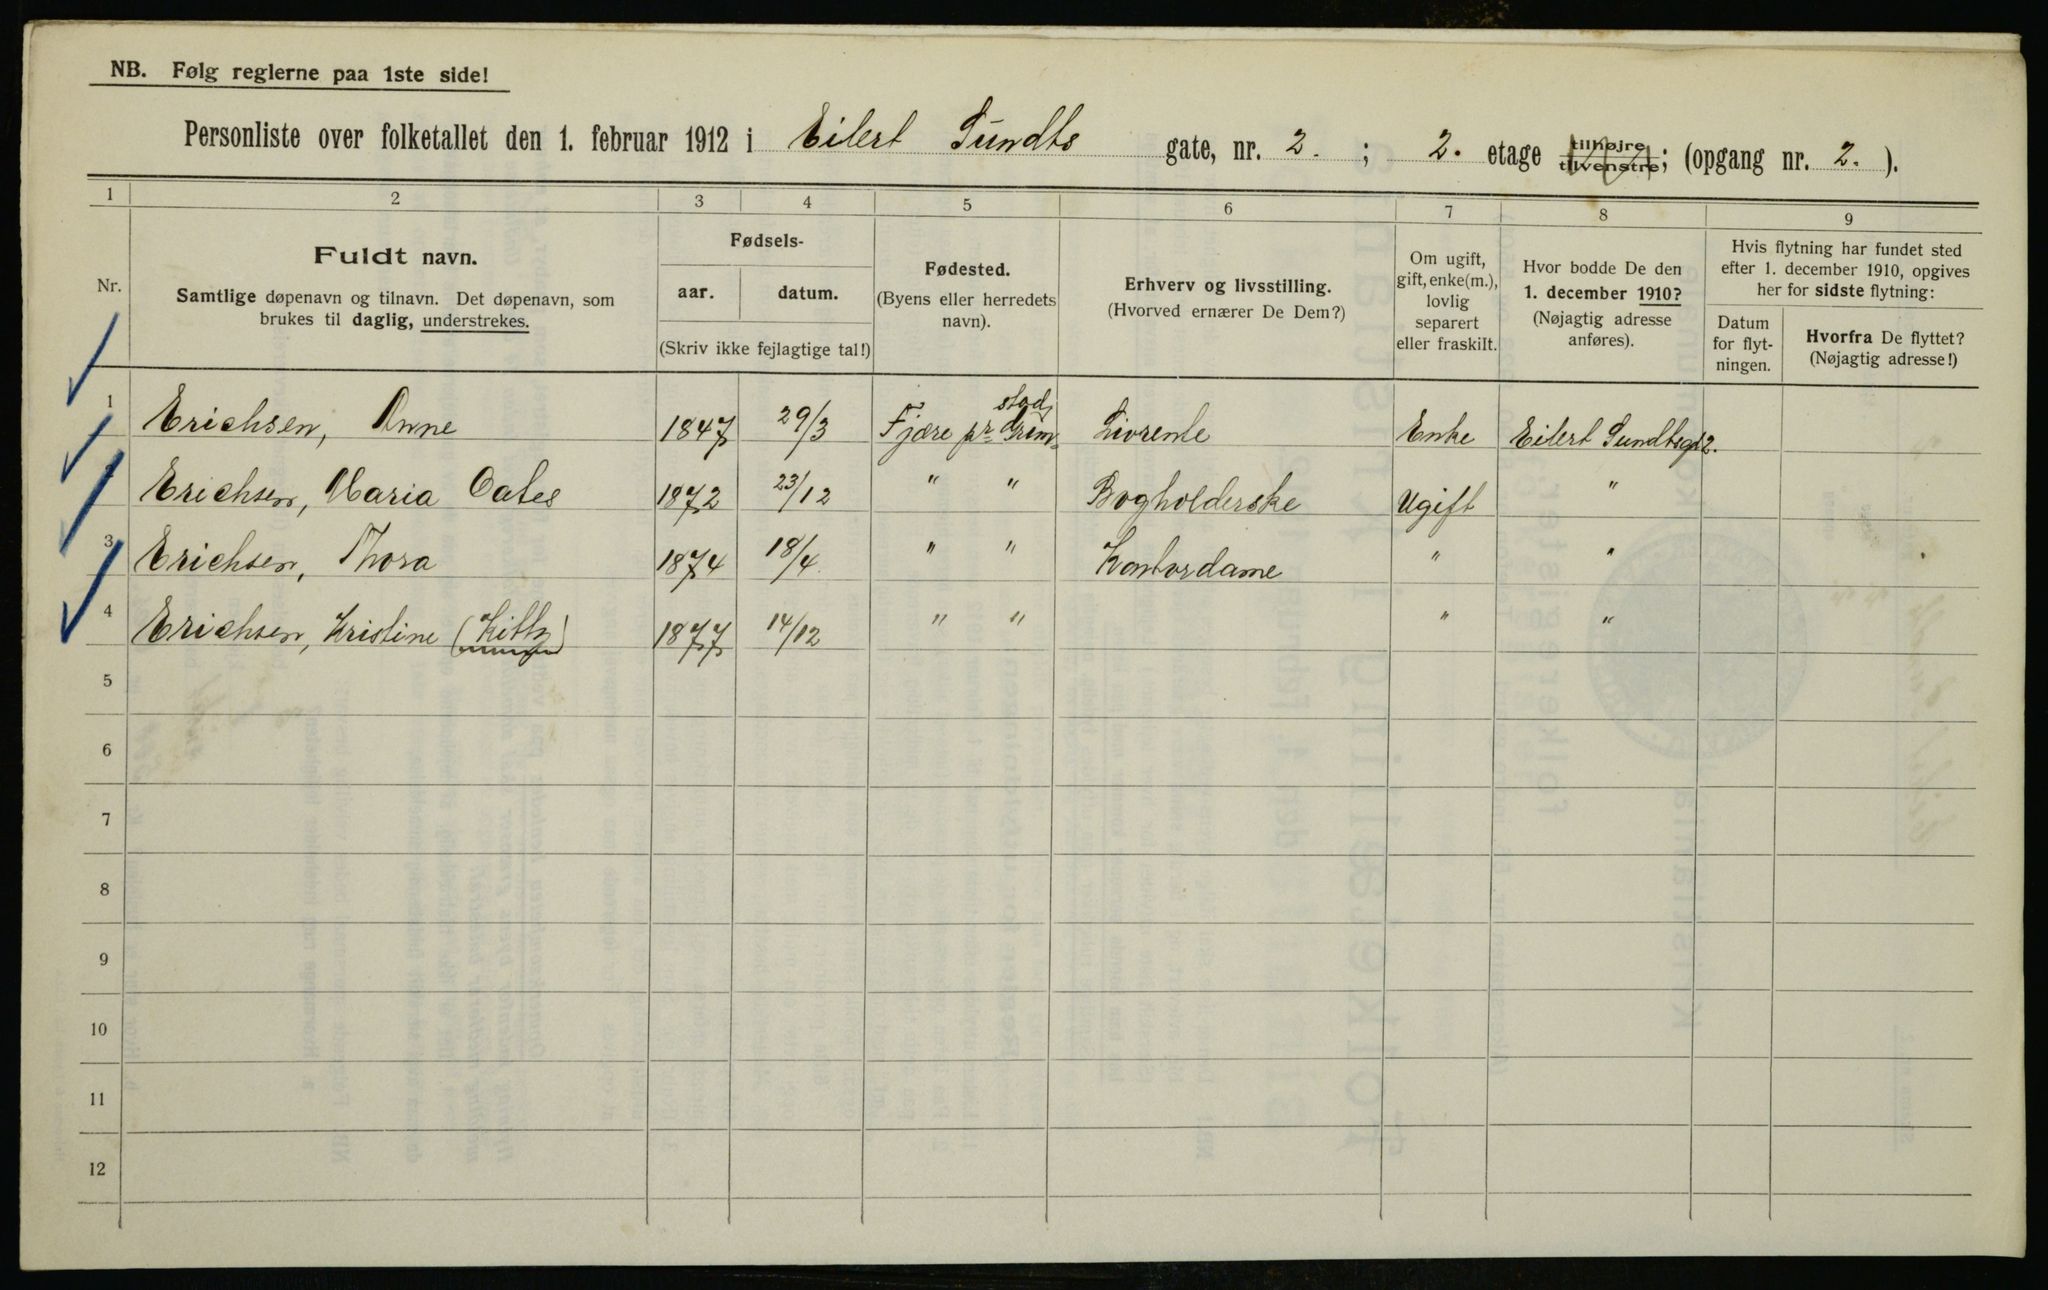 NB. Følg reglerne paa 1ste side!
Personliste over folketallet den 1. februar 1912 i Eilert Sundts gate, nr. 2. ; 2. etage tilhøjre tilvenstre; (opgang nr. 2. ).
1 2 3 4 5 6 7 8 9
Nr.
Fuldt navn.
Samtlige døpenavn og tilnavn. Det døpenavn, som
brukes til daglig, understrekes.
Fødsels-
aar. datum.
(Skriv ikke fejlagtige tal!)
Fødested.
(Byens eller herredets
navn).
Erhverv og livsstilling.
(Hvorved ernærer De Dem?)
Om ugift,
gift, enke(m.),
lovlig
separert
eller fraskilt.
Hvor bodde De den
1. december 1910?
(Nøjagtig adresse
anføres).
Hvis flytning har fundet sted
efter 1. december 1910, opgives
her for sidste flytning:
Datum
for flyt-
ningen.
Hvorfra De flyttet?
(Nøjagtig adresse!)
1 Erichsen, Anne 1847 29/3 Fjære pr Grim- stad Livrente Enke Eilert Sundtsgt 2.
Erichsen, Maria Oates 1872 23/12 " " Bogholderske Ugift "
3 Erichsen, Thora 1874 18/4 " " Kontordame " "
4 Erichsen, Kristine (Kitty) 1877 14/12 " " " "
5
6
7
8
9
10
11
12